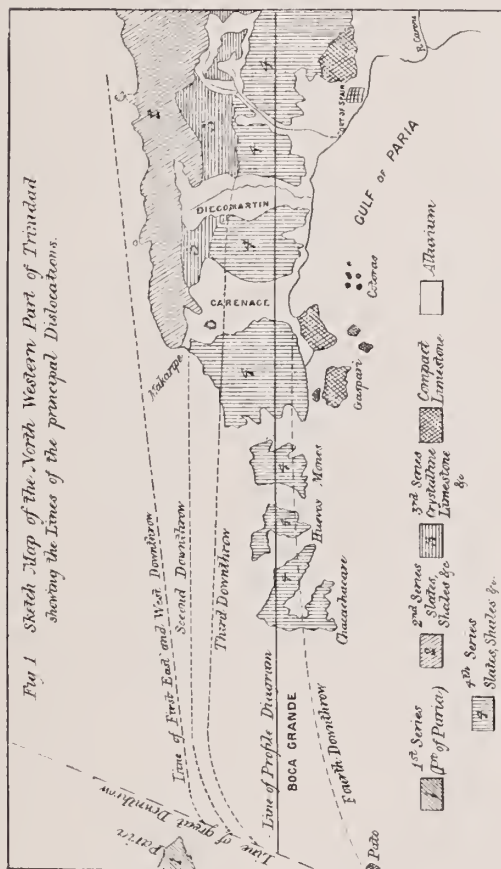 Fig 1 Sketch Map of the North Western Part of Trinidad
showing the Lines of the principal Dislocations.
Line of great Downthrow
Line of First East and West Downthrow
Second Downthrow
Third Downthrow
Line of Profile Diagram
BOCA GRANDE
Fourth Downthrow
Paria
1
Pato
Chacachacare
4
Huevos
4
Mones
4
Makaripe
4
CARENAGE
Gaspari
Cotoras
DIECOMARTIN
2
3
3
4
4
4
PORT OF SPAIN
GULF OF PARIA
R. Caroni
1
1st Series
(Pt of Paria)
2
2nd Series
Slates,
Shales &c
3
3rd Series
Crystalline
Limestone
&c
Compact
Limestone
Alluvium
4
4th Series
Slates, Shales &c.